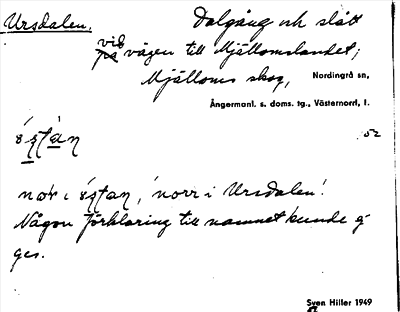 Ursdalen. Dalgång och slått
vid
på vägen till Mjällomslandet;
Mjälloms skog, Nordingrå sn,
Ångermanl. s. doms. tg., Västernorrl. l.
52
nor i , norr i Ursdalen!
Någon förklaring till namnet kunde ej
ges.
Sven Hiller 1949